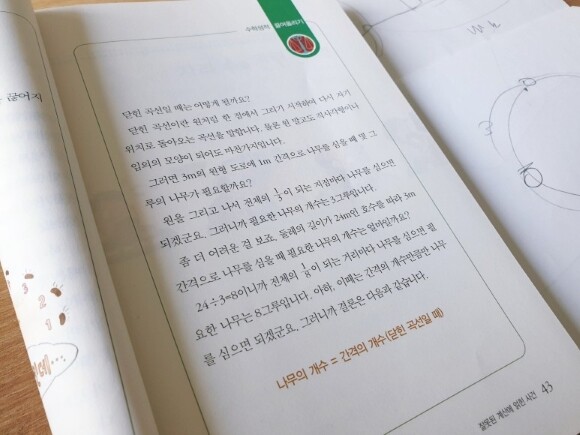 수학영역 끌어올리기
닫힌 곡선일 때는 어떻게 될까요?
닫힌 곡선이란 원처럼 한 점에서 그리기 시작하여 다시 자기
위치로 돌아오는 곡선을 말합니다. 물론 원 말고도 직사각형이나
임의의 모양이 되어도 마찬가지입니다.
그러면 3m의 원형 도로에 1m 간격으로 나무를 심을 때 몇 그
루의 나무가 필요할까요?
원을 그리고 나서 전체의 1/3이 되는 지점마다 나무를 심으면
되겠군요. 그러니까 필요한 나무의 개수는 3그루입니다.
좀 더 어려운 걸 보죠. 둘레의 길이가 24m인 호수를 따라 3m
간격으로 나무를 심을 때 필요한 나무의 개수는 얼마일까요?
24÷3=8이니까 전체의 1/8이 되는 거리마다 나무를 심으면 필
요한 나무는 8그루입니다. 아하, 이때는 간격의 개수만큼만 나무
를 심으면 되겠군요. 그러니까 결론은 다음과 같습니다.
나무의 개수 = 간격의 개수(닫힌 곡선일 때)
잘못된 계산에 얽힌 사건 43
끊어지
3
2
1